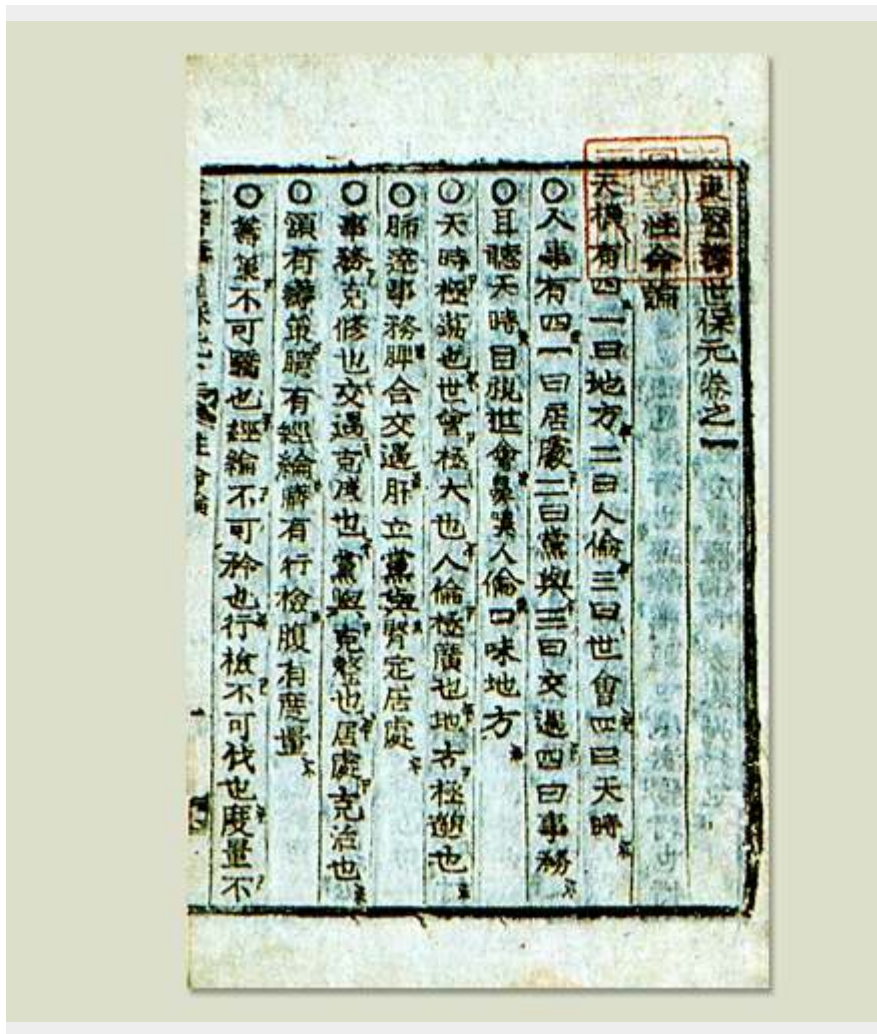 東醫壽世保元卷之一
性命論
天機有四一曰地方二曰人倫三曰世會四曰天時
○人事有四一曰居處二曰黨與三曰交遇四曰事務
○耳聽天時目視世會鼻嗅人倫口味地方
○天時極蕩也世會極大也人倫極廣也地方極邈也
○肺達事務脾合交遇肝立黨與腎定居處
○事務克修也交遇克成也黨與克整也居處克治也
○頷有籌策臆有經綸臍有行檢腹有度量
○籌策不可驕也經綸不可矜也行檢不可伐也度量不